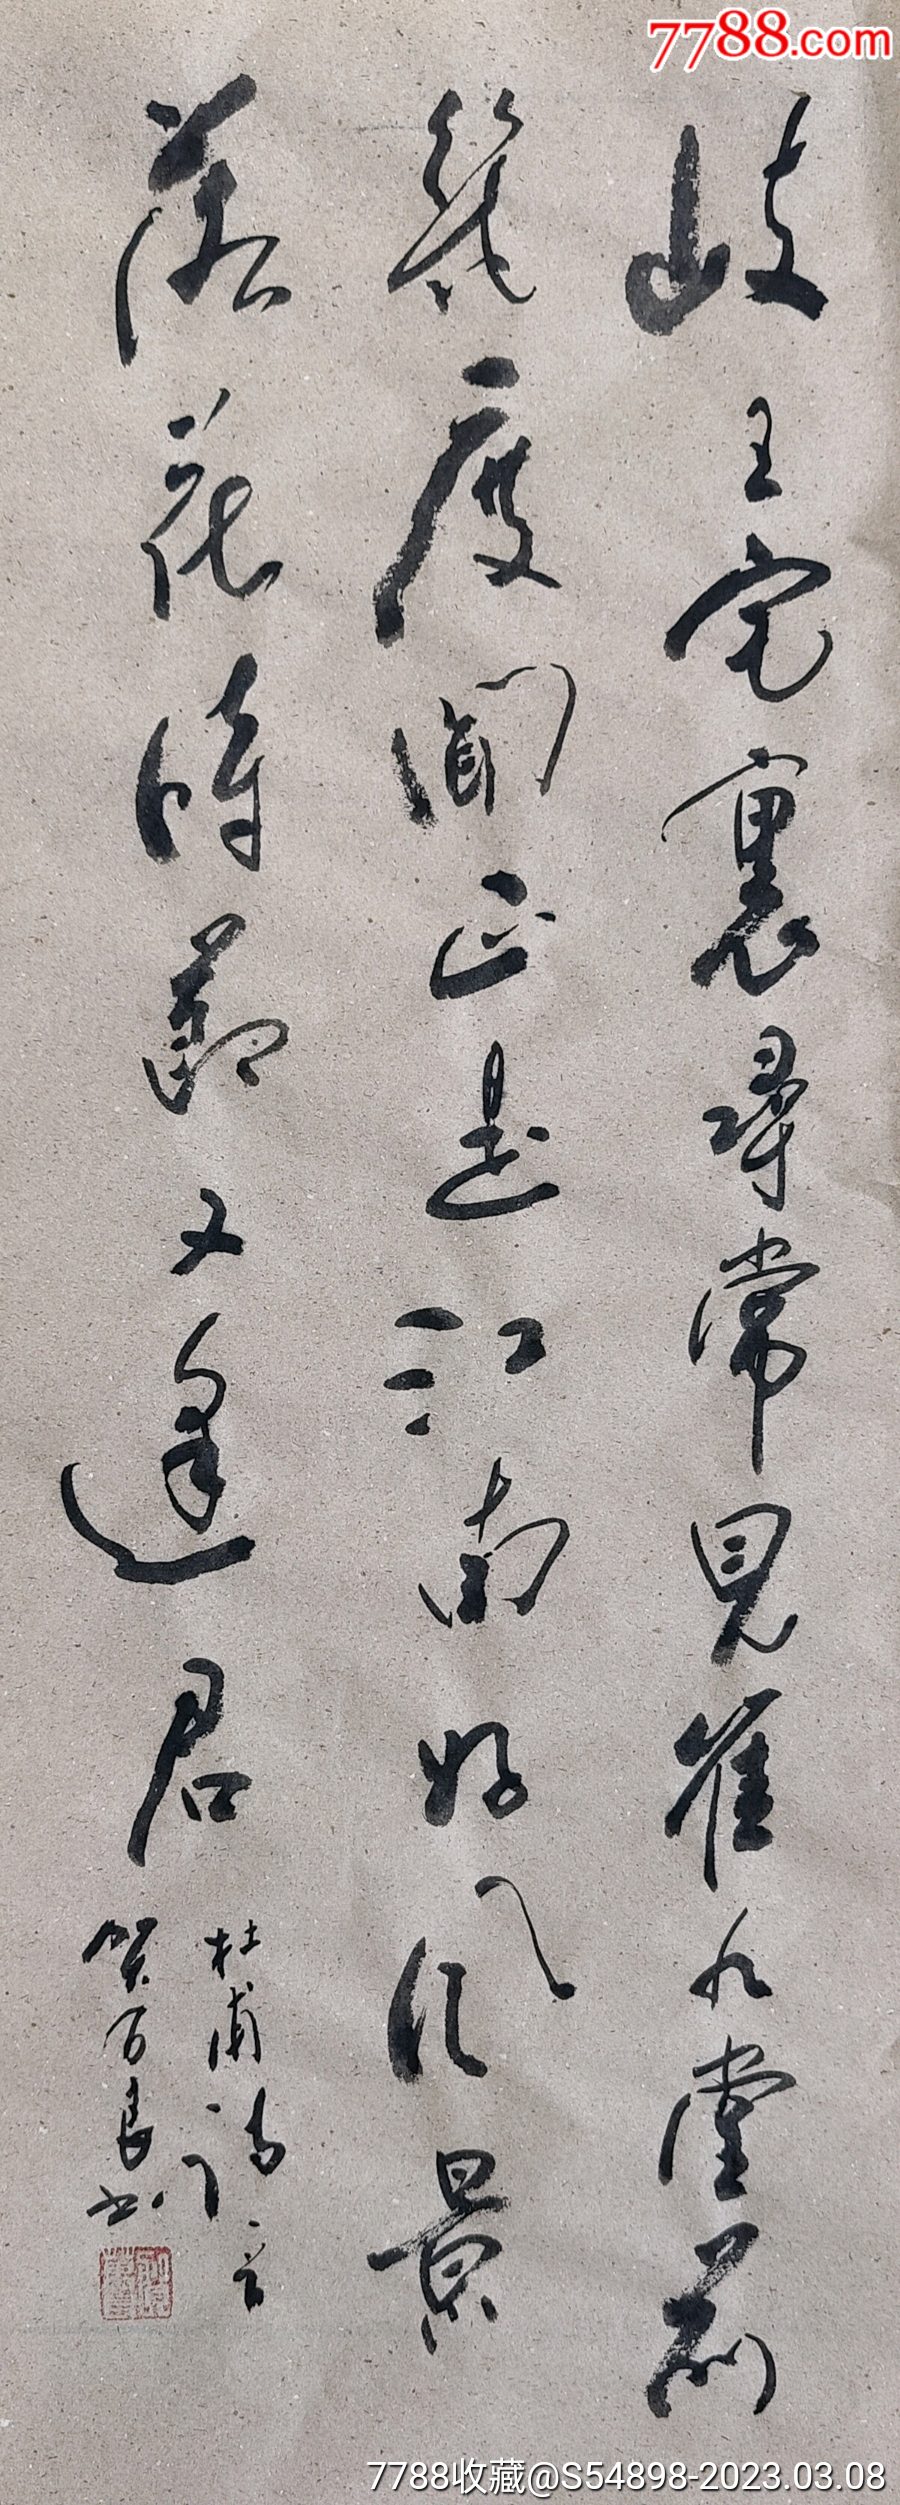 7788.com
岐王宅裏尋常見崔九堂前
幾度聞正是江南好風景
落花時節又逢君
杜甫詩一首
賀百良书
7788收藏@S54898-2023.03.08